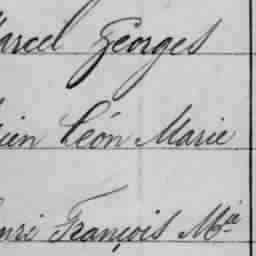 arcel Georges
ien Léon Marie
nri François Mie